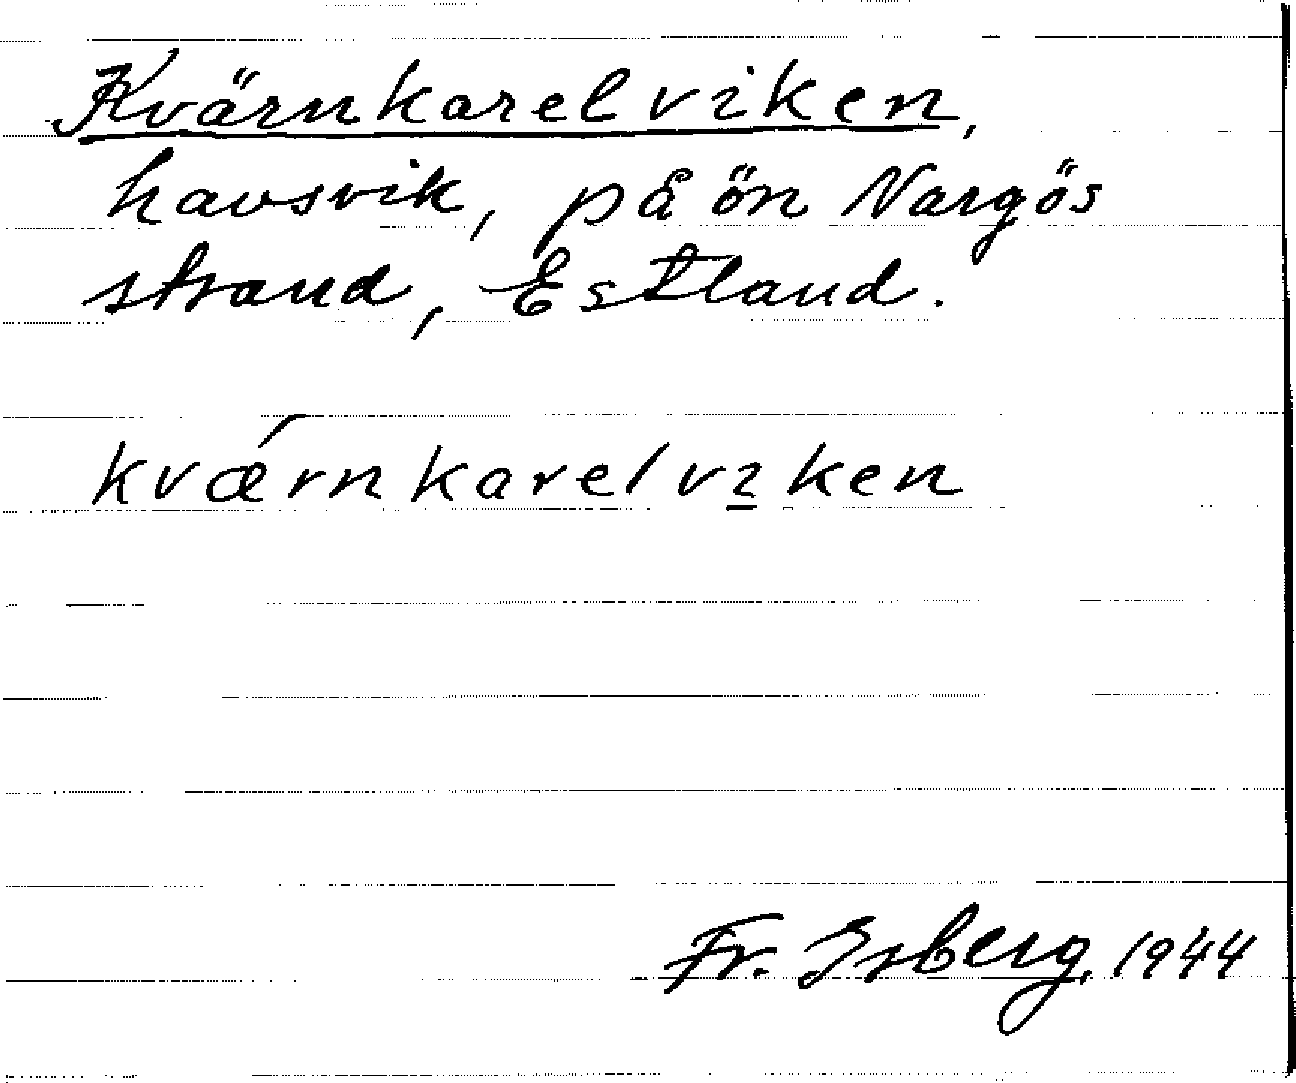 Kvärnkarelviken,
havsvik, på ön Nargös
strand, Estland.
kvǽrnkarelvi̲ken
Fr. Isberg, 1944